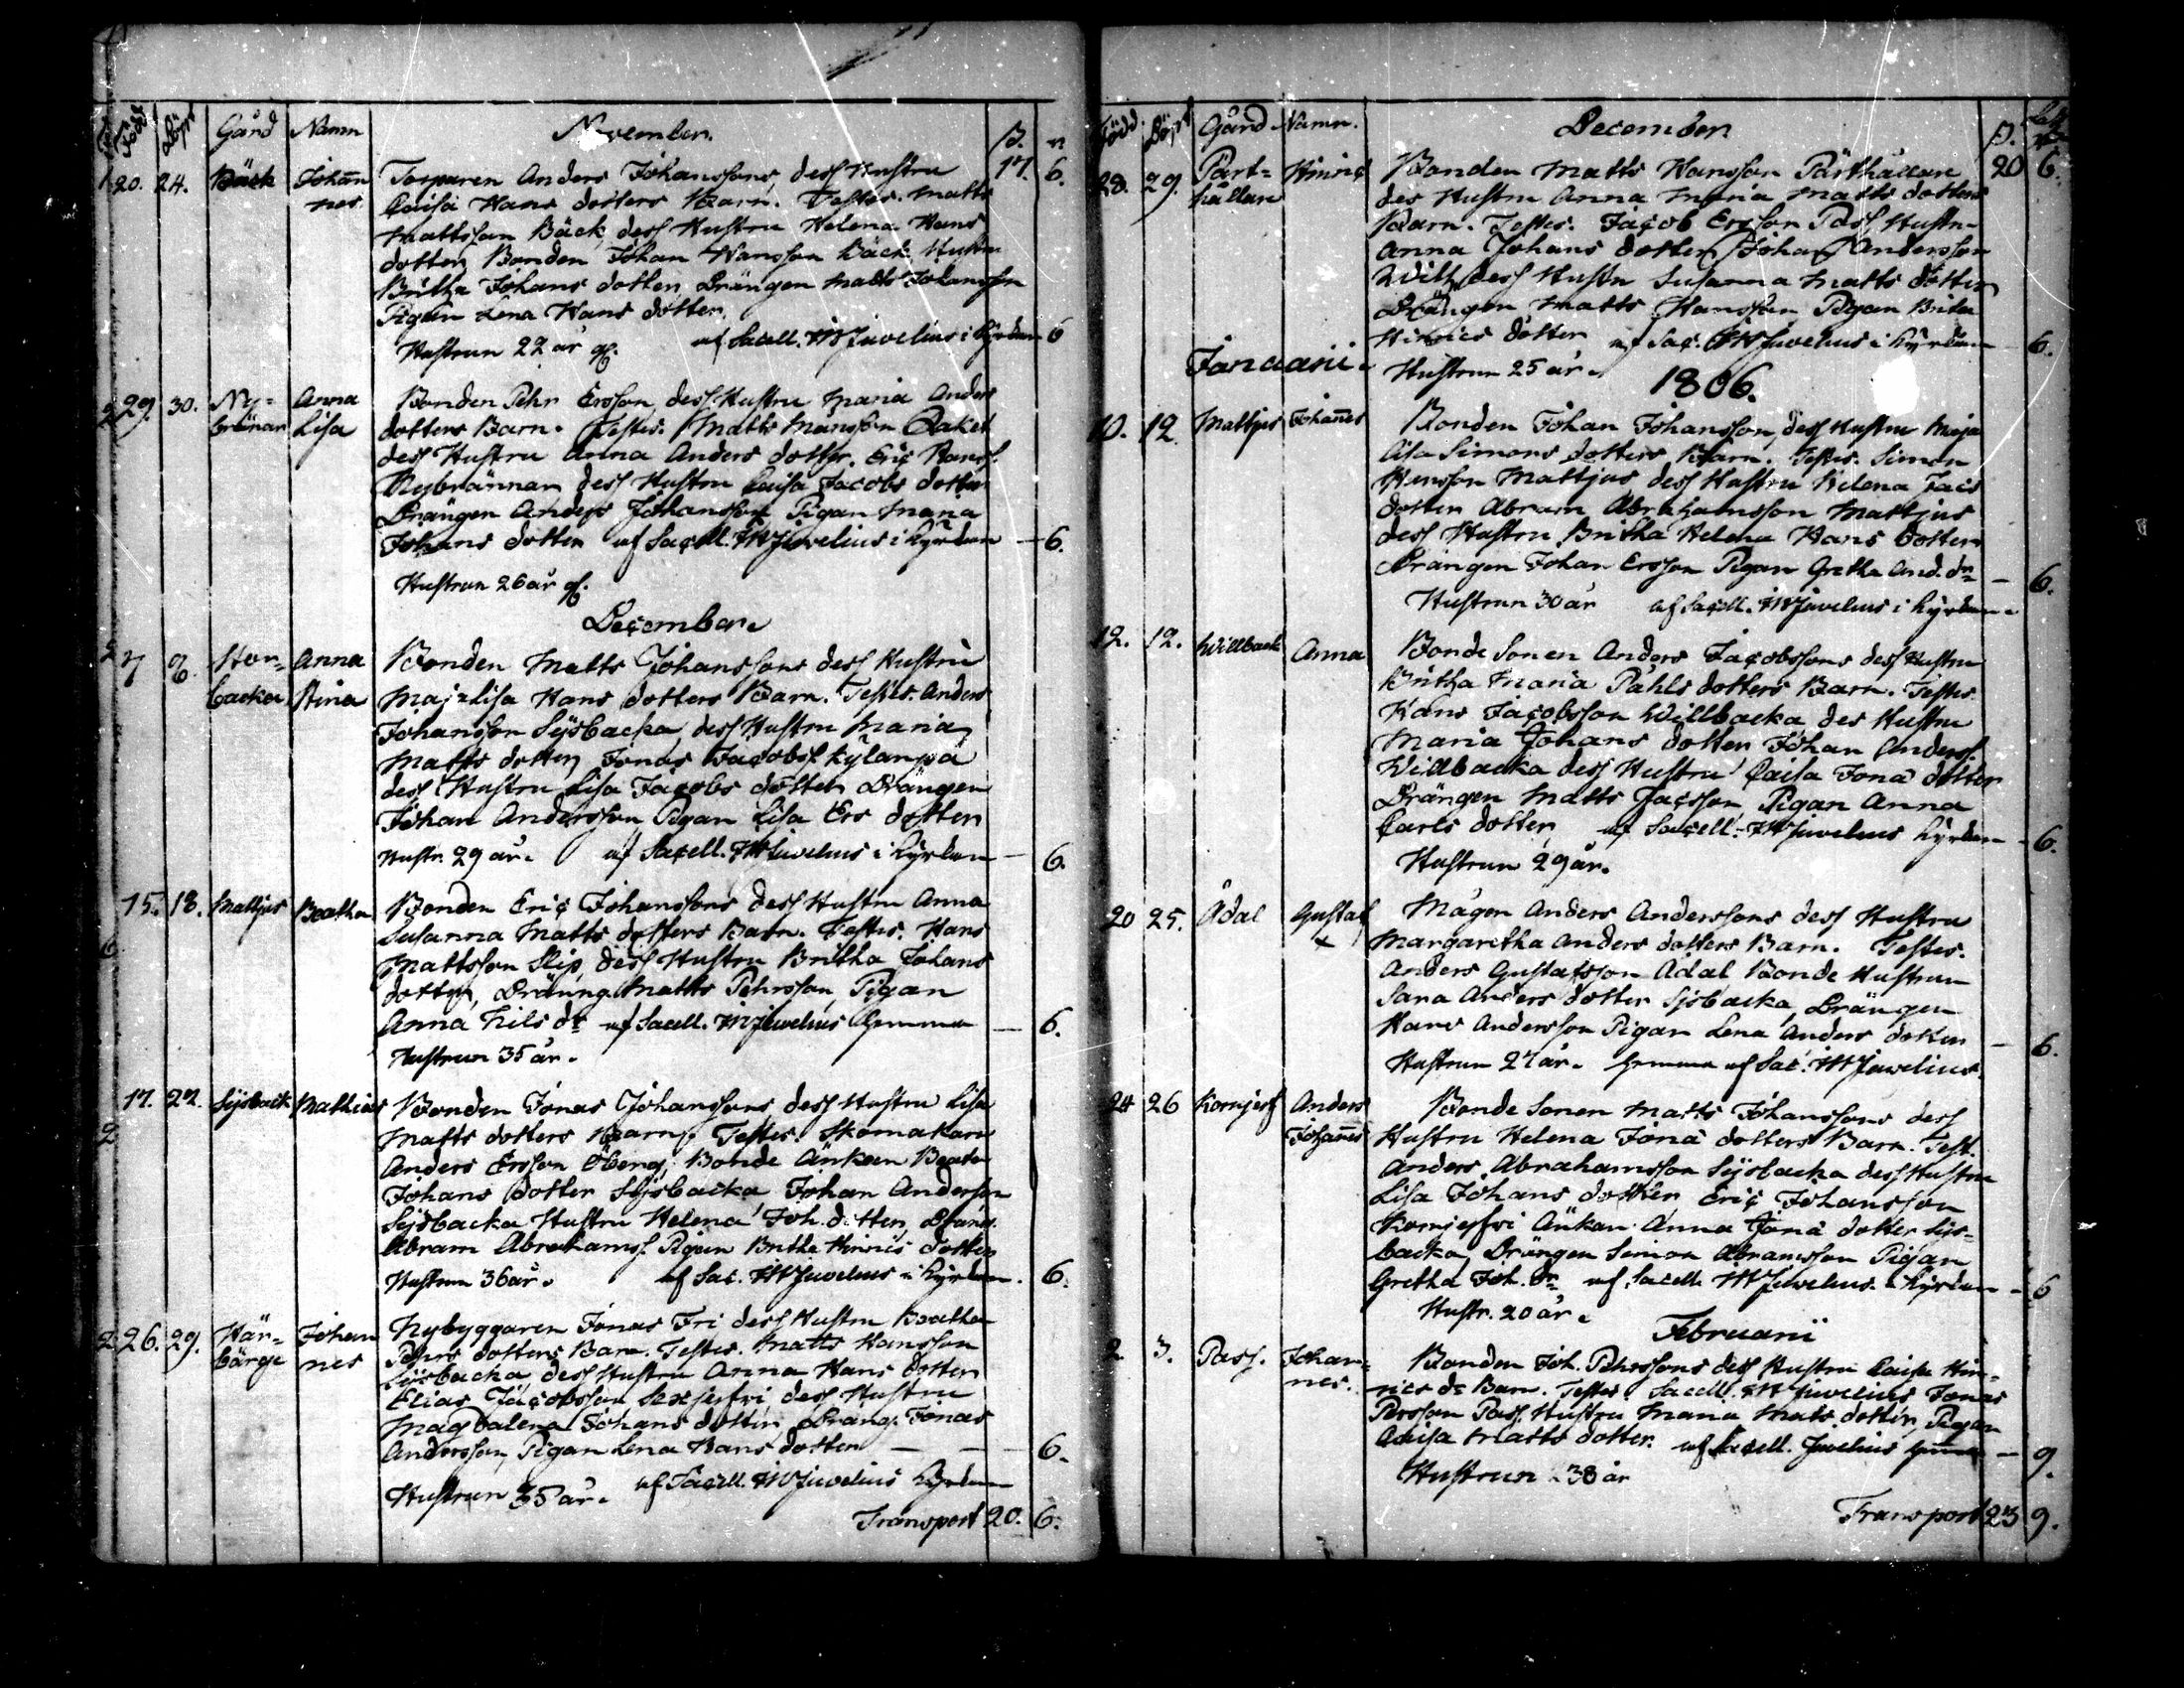 Född Döpt Gård Namn November. β. r.
20. 24. Bäck Johan̄ Torparen Anders Johanssons, dess Hustru 17. 6.
nes Caisa Hans dotters Barn. Testes. Matts
Mattsson Bäck, dess Hustru Helena Hans
dotter, Bonden Johan Hansson Bäck, Hustru
Britha Johans dotter, Drängen Matts Johansson
Pigan Lena Hans dotter,
Hustrun 22 år af Sacell. Juvelius i Kyrkan 6
29. 30. Ny= Anna Bonden Pehr Ersson, dess Hustru Maria Anders
brännar Lisa dotters Barn. Testes. Matts Mansson
dess Hustru Anna Anders dotter. Eric Hanss.
Nybrännar dess Hustru Caisa Jacobs dotter
Drängen Anders Johansson Pigan Maria
Johans dotter af Sacell. Juvelius i Kyrkan — 6.
Hustrun 26 år
December.
7 8. Hor= Anna Bonden Matts Johanssons dess Hustru
backa Stina Maja Lisa Hans dotters Barn. Testes. Anders
Johansson Sijsbacka, dess Hustru Maria
Matts dotter, Jonas Jacobss Kylänpä
dess Hustru Lisa Jacobs dotter Drängen
Johan Andersson Pigan Lisa Ers dotter
Hustr. 29 år. af Sacell. Juvelius i Kyrkan — 6.
15. 18. Mattjus Beatha Bonden Eric Johanssons dess Hustru Anna
Susanna Matts dotters Barn. Testes. Hans
Mattsson Slip, dess Hustru Britha Johans
dotter, Dräng Matts Pehrsson, Pigan
Anna Nils dr af Sacell. Juvelius hemma — 6.
Hustrun 35 år.
17. 22. Sijsback Mathias Bonden Jonas Johanssons dess Hustru Lisa
Matts dotters Barn. Testes. Skomakare
Anders Ersson Öberg, Bonde Ankan Beata
Johans dotter Sijsbacka Johan Andersson
Sijsbacka Hustru Helena Joh. dotter, Dräng.
Abram Abrahamss. Pigan Britha Hinrics dotter
Hustrun 36 år. af Sac. Juvelius i Kyrkan. 6.
26. 29. Här= Johan Nybyggaren Jonas Fri dess Hustru Beatha
bärge nes Pehrs dotters Barn. Testes. Matts Hansson
Sijsbacka, dess Hustru Anna Hans dotter
Elias Jacobsson Sexjesfri dess Hustru
Magdalena Johans dotter, Dräng. Jonas
Andersson, Pigan Lena Hans dotter — 6.
Hustrun 35 år. af Sacell. Juvelius Kyrkan
Transport 20. 6.
Född. Döpt Gård Namn. December β.
28. 29. Pärt= Hinric Bonden Matts Hansson Pärthällan 20 6.
hällan des Hustru Anna Maria Matts dotters
Barn. Testes. Jacob Ersson Pass Hustru
Anna Johans dotter, Johan Andersson
dess Hustru Susanna Matts dotter
Drängen Matts Hansson Pigan Brita
Hinrics dotter af Sac. Juvelius i Kyrkan — 6.
Hustrun 25 år.
Januarii. 1806.
10. 12 Mattjus Johan̄es Bonden Johan Johansson, dess Hustru Maja
Lisa Simons dotters Barn. Testes. Simon
Hansson Mattjus dess Hustru Helena
dotter Abram Abrahamsson Mattjus
dess Hustru Britha Helena Hans dotter
Drängen Johan Ersson Pigan Gretha And. dr — 6.
Hustrun 30 år af Sacell. Juvelius i Kyrkan.
12. 12. Willback Anna Bonde Sonen Anders Jacobssons dess Hustru
Britha Maria Påhls dotters Barn. Testes.
Hans Jacobsson Willbacka des Hustru
Maria Johans dotter Johan Anderss.
Willbacka dess Hustru Caisa Jona dotter
Drängen Matts Jacsson Pigan Anna
Carls dotter af Sacell. Juvelius Kyrkan — 6.
Hustrun 29 år.
20 25. Ådal Gustaf Mågen Anders Anderssons dess Hustru
Margaretha Anders dotters Barn. Testes.
Anders Gustafsson Ådal Bonde Hustrun
Sara Anders dotter Sjsbacka, Drängen
Hans Andersson Pigan Lena Anders dotter — 6.
Hustrun 27 år. hemma af Sac. Juvelius.
24 26 Kornjesf Anders Bonde Sonen Matts Johanssons dess
Johan̄es Hustru Helena Jona dotters Barn. Test.
Anders Abrahamsson Sijsbacka dess Hustru
Lisa Johans dotter Eric Johansson
Kornjesfri Änkan Anna Jona dotter Sijs=
backa, Drängen Simon Abramsson Pigan
Gretha Joh. dr af Sacell. Juvelius. i Kyrkan — 6
Hustr. 20 år.
Februarii
2 3. Pass. Johan= Bonden Joh. Pehrssons dess Hustru Caisa Hin=
nes. rics dr Barn. Testes Sacell. Juvelius Jonas
Persson Pass. Hustru Maria Mats dotter, Pigan
Caisa Matts dotter. af Sacell. Juvelius hemma — 9.
Hustrun 38 år
Transport 23 9.